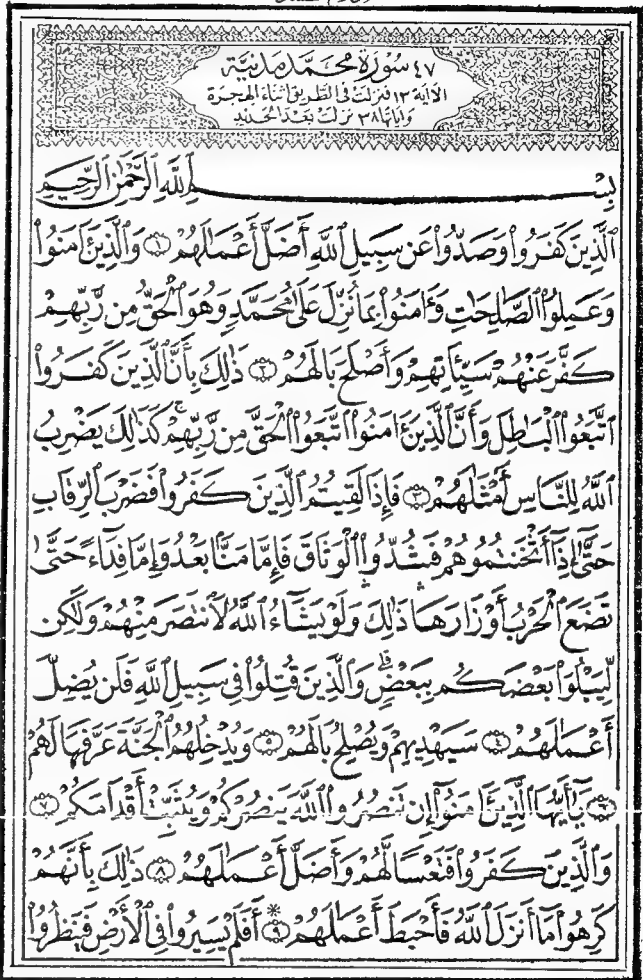 ٤٧ سُورَة مُحَمَّد مَدَنِيَّة
الآية ١٣ فنزلت فى الطريق أثناء الهجرة
وآياتها ٣٨ نزلت بعد الحديد
بِسۡمِ ٱللَّهِ ٱلرَّحۡمَٰنِ ٱلرَّحِيمِ
ٱلَّذِينَ كَفَرُواْ وَصَدُّواْ عَن سَبِيلِ ٱللَّهِ أَضَلَّ أَعۡمَٰلَهُمۡ ١ وَٱلَّذِينَ ءَامَنُواْ
وَعَمِلُواْ ٱلصَّٰلِحَٰتِ وَءَامَنُواْ بِمَا نُزِّلَ عَلَىٰ مُحَمَّدٖ وَهُوَ ٱلۡحَقُّ مِن رَّبِّهِمۡ
كَفَّرَ عَنۡهُمۡ سَيِّـَٔاتِهِمۡ وَأَصۡلَحَ بَالَهُمۡ ٢ ذَٰلِكَ بِأَنَّ ٱلَّذِينَ كَفَرُواْ
ٱتَّبَعُواْ ٱلۡبَٰطِلَ وَأَنَّ ٱلَّذِينَ ءَامَنُواْ ٱتَّبَعُواْ ٱلۡحَقَّ مِن رَّبِّهِمۡۚ كَذَٰلِكَ يَضۡرِبُ
ٱللَّهُ لِلنَّاسِ أَمۡثَٰلَهُمۡ ٣ فَإِذَا لَقِيتُمُ ٱلَّذِينَ كَفَرُواْ فَضَرۡبَ ٱلرِّقَابِ
حَتَّىٰٓ إِذَآ أَثۡخَنتُمُوهُمۡ فَشُدُّواْ ٱلۡوَثَاقَ فَإِمَّا مَنَّۢا بَعۡدُ وَإِمَّا فِدَآءً حَتَّىٰ
تَضَعَ ٱلۡحَرۡبُ أَوۡزَارَهَاۚ ذَٰلِكَۖ وَلَوۡ يَشَآءُ ٱللَّهُ لَٱنتَصَرَ مِنۡهُمۡ وَلَٰكِن
لِّيَبۡلُوَاْ بَعۡضَكُم بِبَعۡضٖۗ وَٱلَّذِينَ قُتِلُواْ فِى سَبِيلِ ٱللَّهِ فَلَن يُضِلَّ
أَعۡمَٰلَهُمۡ ٤ سَيَهۡدِيهِمۡ وَيُصۡلِحُ بَالَهُمۡ ٥ وَيُدۡخِلُهُمُ ٱلۡجَنَّةَ عَرَّفَهَا لَهُمۡ
٦ يَٰٓأَيُّهَا ٱلَّذِينَ ءَامَنُوٓاْ إِن تَنصُرُواْ ٱللَّهَ يَنصُرۡكُمۡ وَيُثَبِّتۡ أَقۡدَامَكُمۡ ٧
وَٱلَّذِينَ كَفَرُواْ فَتَعۡسٗا لَّهُمۡ وَأَضَلَّ أَعۡمَٰلَهُمۡ ٨ ذَٰلِكَ بِأَنَّهُمۡ
كَرِهُواْ مَآ أَنزَلَ ٱللَّهُ فَأَحۡبَطَ أَعۡمَٰلَهُمۡ ٩ * أَفَلَمۡ يَسِيرُواْ فِى ٱلۡأَرۡضِ فَيَنظُرُواْ